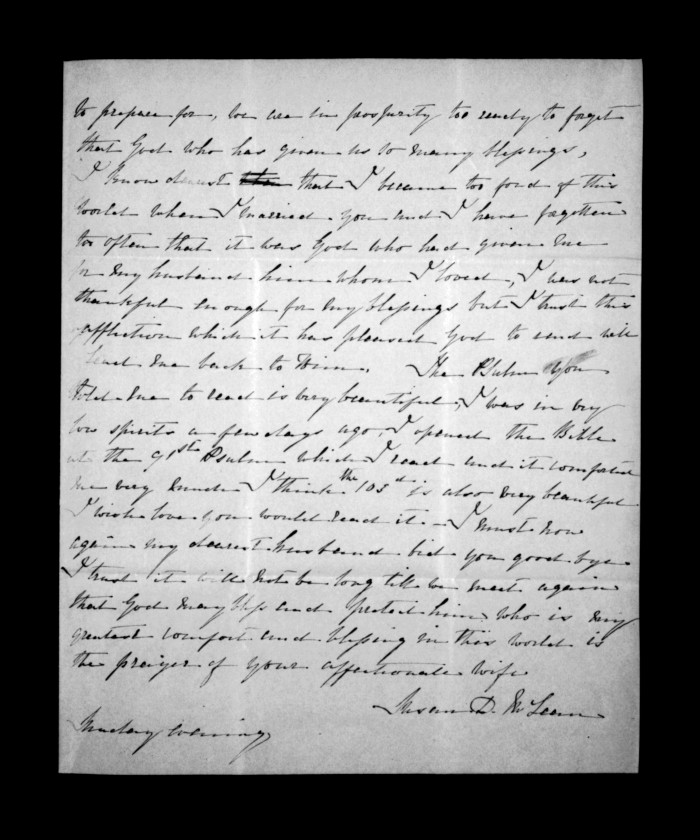 to prepare for, we are in prosperity too ready to forget
that God who has given us so many blessings,
I know dearest that I became too fond of this
world when I married you and I have forgotten
too often that it was God who had given me
for my husband him whom I loved, I was not
thankful enough for my blessings but I trust this
affliction which it has pleased God to send will
lead me back to Him. The Psalm you
told me to read is very beautiful, I was in very
low spirits a few days ago, I opened the Bible
at the 91st Psalm which I read and it comforted
me very much I think the 103d is also very beautiful
I wish love you would read it. I must now
again my dearest husband bid you good bye
I trust it will not be long till we meet again
that God may bless and protect him who is my
greatest comfort and blessing in this world is
the prayer of your affectionate wife
Susan D. McLean
Sunday evening